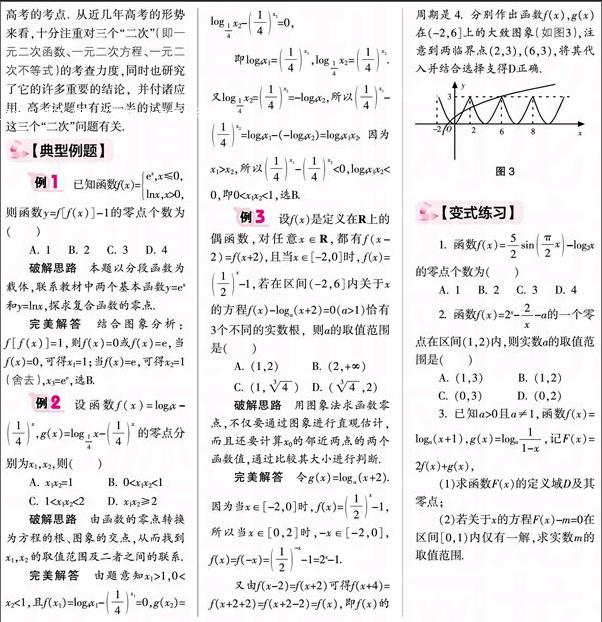 高考的考点. 从近几年高考的形势
来看,十分注重对三个“二次”(即一
元二次函数、一元二次方程、一元二
次不等式)的考查力度,同时也研究
了它的许多重要的结论, 并付诸应
用. 高考试题中有近一半的试题与
这三个“二次”问题有关.
【典型例题】
例1 已知函数f(x)={eˣ,x≤0,
lnx,x>0,
则函数y=f[f(x)]-1的零点个数为
( )
A. 1 B. 2 C. 3 D. 4
破解思路 本题以分段函数为
载体,联系教材中两个基本函数y=eˣ
和y=lnx,探求复合函数的零点.
完美解答 结合图象分析:
f[f(x)]=1,则f(x)=0或f(x)=e,当
f(x)=0,可得x₁=1;当f(x)=e,可得x₂=1
(舍去),x₃=eᵉ,选B.
例2 设函数f(x)=log₄x-
(1/4)ˣ,g(x)=log_{1/4}x-(1/4)ˣ的零点分
别为x₁,x₂,则( )
A. x₁x₂=1 B. 0<x₁x₂<1
C. 1<x₁x₂<2 D. x₁x₂≥2
破解思路 由函数的零点转换
为方程的根、图象的交点,从而找到
x₁,x₂的取值范围及二者之间的联系.
完美解答 由题意知x₁>1,0<
x₂<1,且f(x₁)=log₄x₁-(1/4)^{x₁}=0,g(x₂)=
log_{1/4}x₂-(1/4)^{x₂}=0,
即log₄x₁=(1/4)^{x₁},log_{1/4}x₂=(1/4)^{x₂}.
又log_{1/4}x₂=(1/4)^{x₂}=-log₄x₂,所以(1/4)^{x₁}-
(1/4)^{x₂}=log₄x₁-(-log₄x₂)=log₄x₁x₂. 因为
x₁>x₂,所以(1/4)^{x₁}-(1/4)^{x₂}<0,log₄x₁x₂<
0,即0<x₁x₂<1,选B.
例3 设f(x)是定义在R上的
偶函数,对任意x∈R,都有f(x-
2)=f(x+2),且当x∈[-2,0]时,f(x)=
(1/2)ˣ-1,若在区间(-2,6]内关于x
的方程f(x)-logₐ(x+2)=0(a>1)恰有
3个不同的实数根, 则a的取值范围
是( )
A. (1,2) B. (2,+∞)
C. (1,∛4) D. (∛4,2)
破解思路 用图象法求函数零
点,不仅要通过图象进行直观估计,
而且还要计算x₀的邻近两点的两个
函数值,通过比较其大小进行判断.
完美解答 令g(x)=logₐ(x+2).
因为当x∈[-2,0]时,f(x)=(1/2)ˣ-1,
所以当x∈[0,2]时,-x∈[-2,0],
f(x)=f(-x)=(1/2)⁻ˣ-1=2ˣ-1.
又由f(x-2)=f(x+2)可得f(x+4)=
f(x+2+2)=f(x+2-2)=f(x),即f(x)的
周期是4. 分别作出函数f(x),g(x)
在(-2,6]上的大致图象(如图3),注
意到两临界点(2,3),(6,3),将其代
入并结合选择支得D正确.
y
3
-2 O 2 6 8 x
图3
【变式练习】
1. 函数f(x)=5/2 sin(π/2 x)-log₂x
的零点个数为( )
A. 1 B. 2 C. 3 D. 4
2. 函数f(x)=2ˣ-2/x-a的一个零
点在区间(1,2)内,则实数a的取值范
围是( )
A. (1,3) B. (1,2)
C. (0,3) D. (0,2)
3. 已知a>0且a≠1,函数f(x)=
logₐ(x+1),g(x)=logₐ 1/(1-x),记F(x)=
2f(x)+g(x),
(1)求函数F(x)的定义域D及其
零点;
(2)若关于x的方程F(x)-m=0在
区间[0,1)内仅有一解,求实数m的
取值范围.